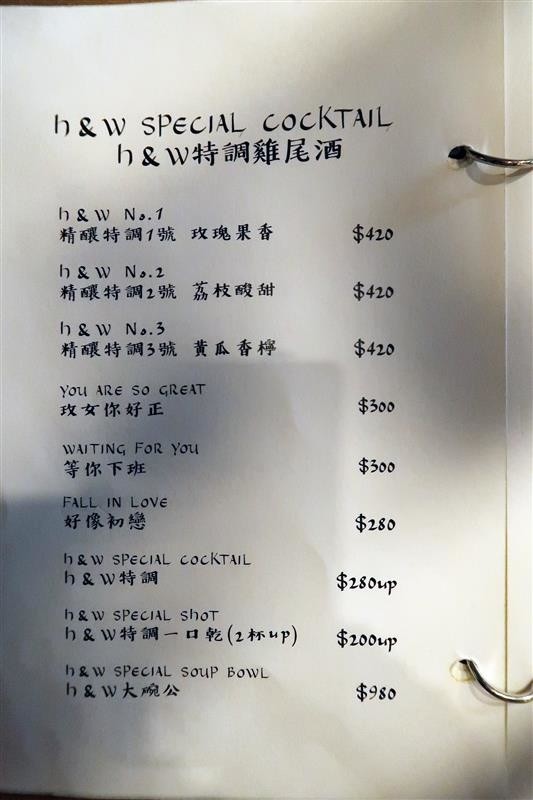 h & W SPECIAL COCKTAIL
h & W特調雞尾酒
h & W No.1
精釀特調1號 玫瑰果香 $420
h & W No.2
精釀特調2號 荔枝酸甜 $420
h & W No.3
精釀特調3號 黃瓜香檸 $420
YOU ARE SO GREAT
玫女你好正 $300
WAITING FOR YOU
等你下班 $300
FALL IN LOVE
好像初戀 $280
h & W SPECIAL COCKTAIL
h & W特調 $280up
h & W SPECIAL SHOT
h & W特調一口乾(2杯up) $200up
h & W SPECIAL SOUP BOWL
h & W大碗公 $980